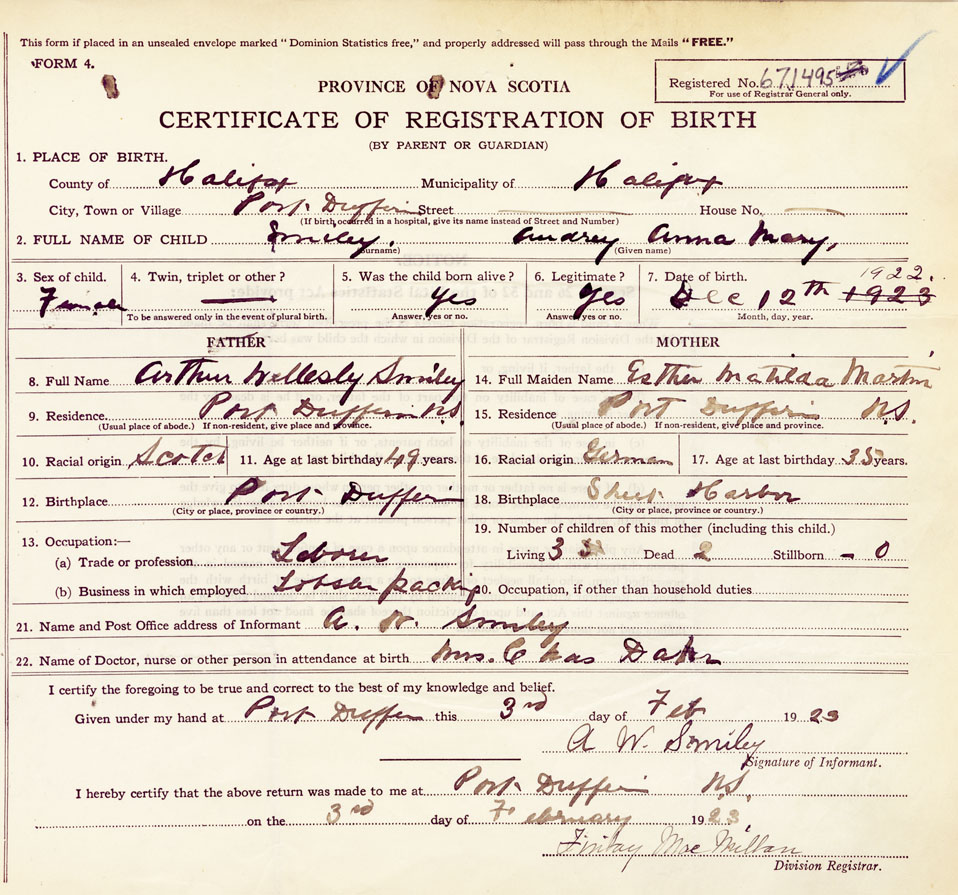 This form if placed in an unsealed envelope marked "Dominion Statistics free," and properly addressed will pass through the Mails "FREE."
FORM 4.
Registered No. 671495
For use of Registrar General only.
PROVINCE OF NOVA SCOTIA
CERTIFICATE OF REGISTRATION OF BIRTH
(BY PARENT OR GUARDIAN)
1. PLACE OF BIRTH.
County of Halifax Municipality of Halifax
City, Town or Village Port Dufferin Street House No.
(If birth occurred in a hospital, give its name instead of Street and Number)
2. FULL NAME OF CHILD Smiley, Audrey Anna Mary,
(Surname) (Given name)
3. Sex of child. 4. Twin, triplet or other? 5. Was the child born alive? 6. Legitimate? 7. Date of birth. 1922.
Female Yes Yes Dec 12th 1923
To be answered only in the event of plural birth. Answer, yes or no. Answer, yes or no. Month, day, year.
FATHER MOTHER
8. Full Name Arthur Wellesly Smiley 14. Full Maiden Name Esther Matilda Martin
9. Residence. Port Dufferin N.S. 15. Residence Port Dufferin N.S.
(Usual place of abode.) If non-resident, give place and province. (Usual place of abode.) If non-resident, give place and province.
10. Racial origin Scotch 11. Age at last birthday 49 years. 16. Racial origin German 17. Age at last birthday 35 years.
12. Birthplace Port Dufferin 18. Birthplace Sheet Harbor
(City or place, province or country.) (City or place, province or country.)
13. Occupation:— 19. Number of children of this mother (including this child.)
(a) Trade or profession Labour Living 3 Dead 2 Stillborn - 0
(b) Business in which employed Lobster packing 20. Occupation, if other than household duties
21. Name and Post Office address of Informant A. W. Smiley
22. Name of Doctor, nurse or other person in attendance at birth Mrs. Chas
I certify the foregoing to be true and correct to the best of my knowledge and belief.
Given under my hand at Port Dufferin this 3rd day of Feb 1923
A W. Smiley
Signature of Informant.
I hereby certify that the above return was made to me at Port Dufferin N.S.
on the 3rd day of February 1923,
Finlay MacMillan
Division Registrar.